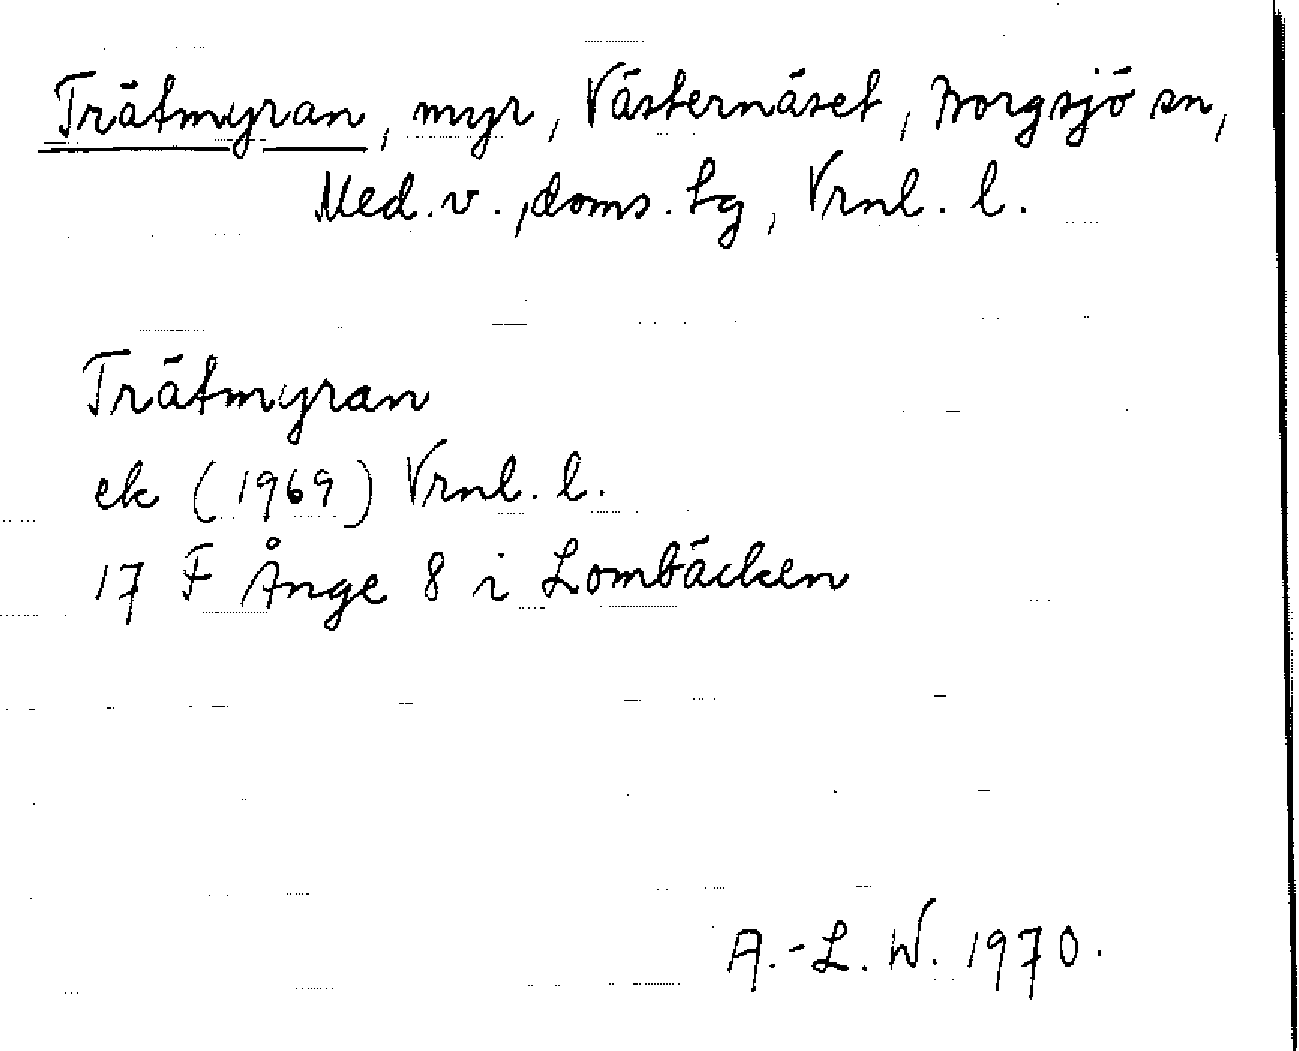 Trätmyran, myr, Västernäset, Borgsjö sn,
Med. v., doms. lg, Vrnl. l.
Trätmyran
ek (1969) Vrnl. l.
17 F Ånge 8 i Lombäcken
A.-L. W. 1970.